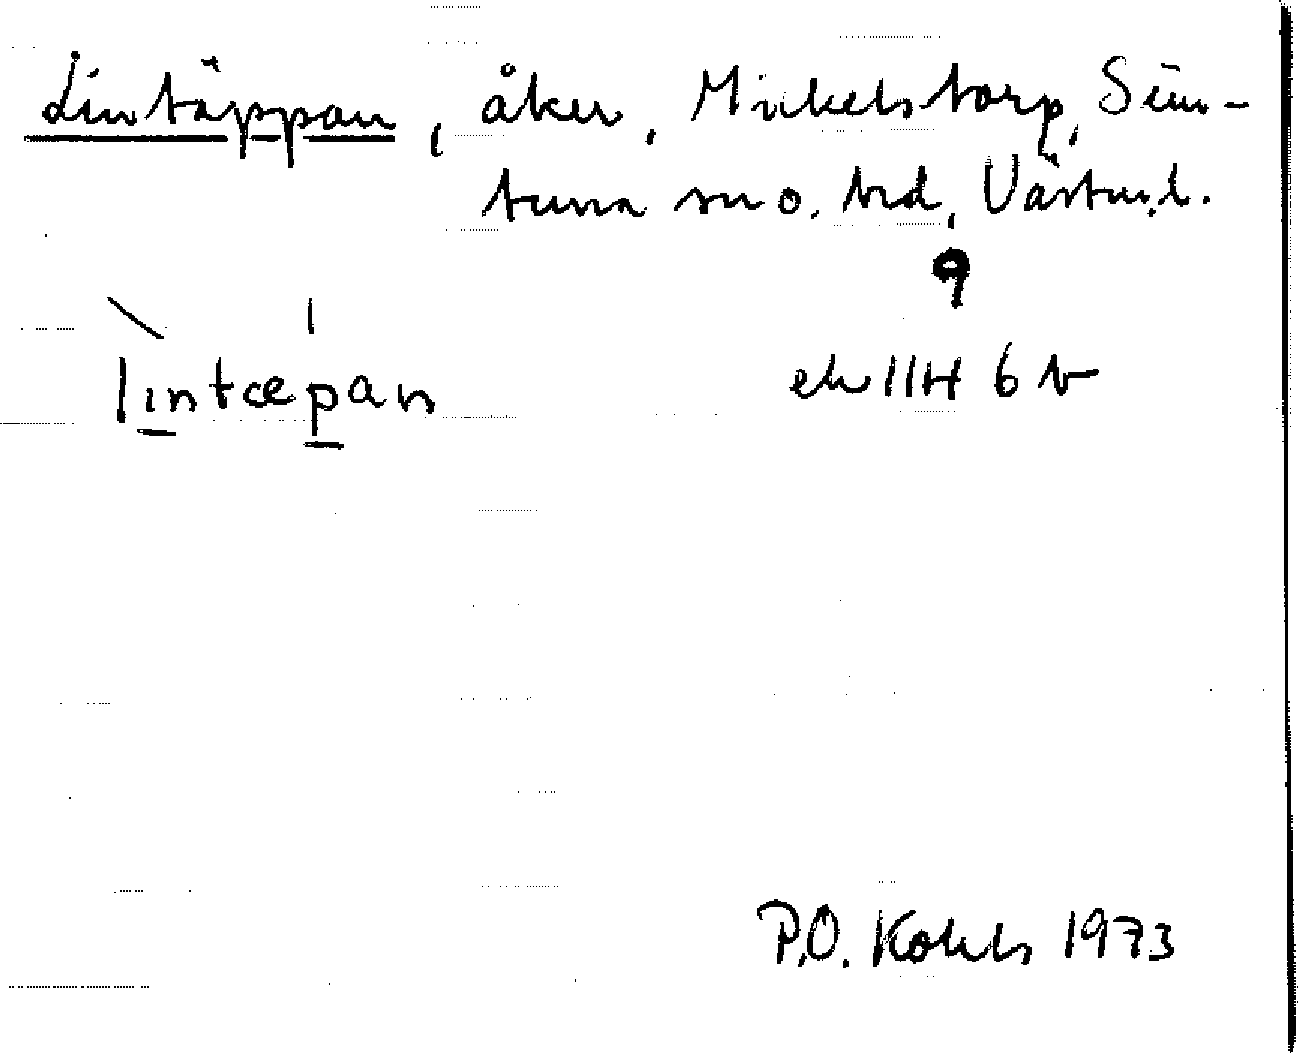 Lintäppan, åker, Mickelstorp, Sim-
tuna sn o. hd, Västm.l.
9
lıntæpan
ek 11H 6 b
P.O. 1973